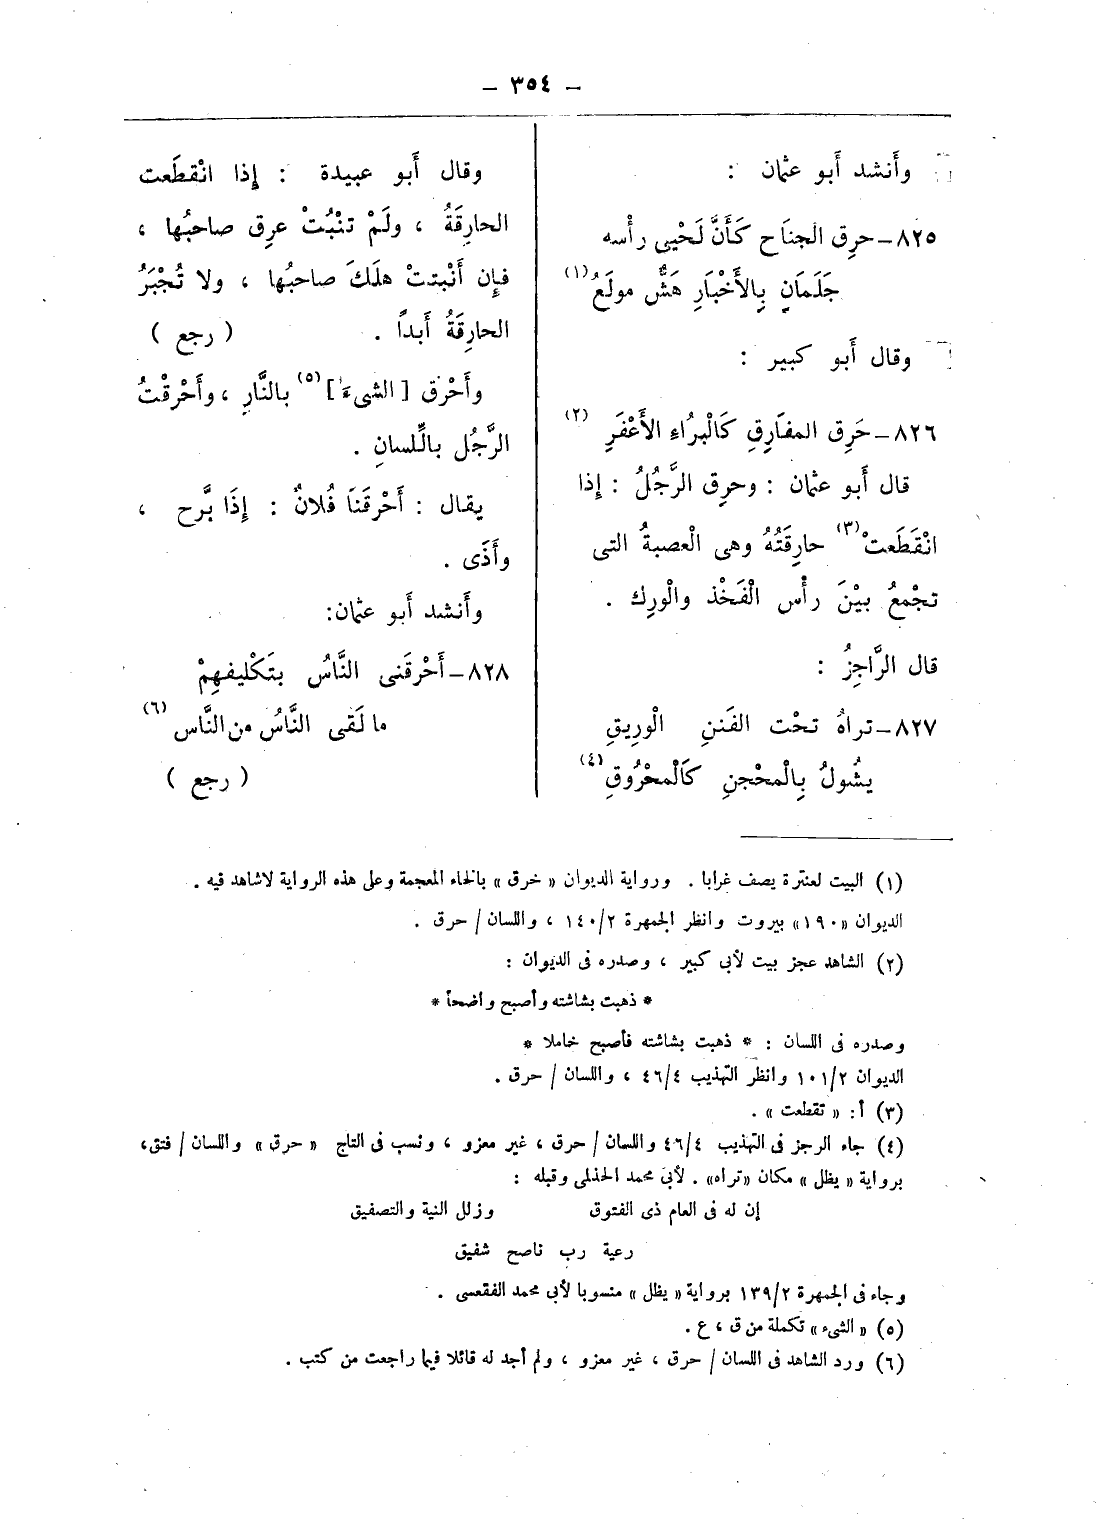 — ٣٥٤ —
وأَنشد أَبو عثمان :
٨٢٥ـ حرِق الجنَاح كَأَنَّ لَحْيى رأْسه
جَلَمَانِ بِالأَخْبَارِ هَشٌّ مولَعُ (١)
وقال أَبو كبير :
٨٢٦ـ حَرِق المفَارِقِ كَالْبرُاءِ الأَعْفَرِ (٢)
قال أَبو عثمان : وحرِق الرَّجُلُ : إِذا
انْقَطَعتْ (٣) حارِقَتُهُ وهى الْعصبةُ التى
تجْمعُ بيْنَ رأْس الْفَخْذ والْورِك .
قال الرَّاجِزُ :
٨٢٧ـ تراهُ تحْت الفَننِ الْورِيقِ
يشُولُ بِالْمحْجنِ كَالْمحْرُوقِ (٤)
وقال أَبو عبيدة : إِذا انْقطَعت
الحارِقَةُ ، ولَمْ تنْبُتْ عرِق صاحبُها ،
فإِن أَنْبتتْ هلَكَ صاحبُها ، ولا تُجْبَرُ
الحارِقَةُ أَبداً . ( رجع )
وأَحْرَق [ الشىءَ ] (٥) بالنَّارِ ، وأَحْرقْتُ
الرَّجُل بالِّلسانِ .
يقال : أَحْرقَنَا فُلانٌ : إِذَا بَّرح ،
وأَذَى .
وأَنشد أَبو عثمان:
٨٢٨ـ أَحْرقَنى النَّاسُ بتَكْليفهِمْ
ما لَقى النَّاسُ من النَّاس (٦)
( رجع )
(١) البيت لعنترة يصف غرابا . ورواية الديوان « خرق » بالخاء المعجمة وعلى هذه الرواية لاشاهد فيه .
الديوان «١٩٠» بيروت وانظر الجمهرة ١٤٠/٢ ، واللسان / حرق .
(٢) الشاهد عجز بيت لأبى كبير ، وصدره فى الديوان :
* ذهبت بشاشته وأصبح واضحاً *
وصدره فى اللسان : * ذهبت بشاشته فأصبح خاملا *
الديوان ١٠١/٢ وانظر التهذيب ٤٦/٤ ، واللسان / حرق .
(٣) أ : « تقطعت » .
(٤) جاء الرجز فى التهذيب ٤٦/٤ واللسان / حرق ، غير معزو ، ونسب فى التاج « حرق » واللسان / فتق،
برواية « يظل » مكان «تراه» . لأبى محمد الحذلمى وقبله :
إن له فى العام ذى الفتوق وزلل النية والتصفيق
رعية رب ناصح شفيق
وجاء فى الجمهرة ١٣٩/٢ برواية « يظل » منسوبا لأبى محمد الفقعسى .
(٥) « الشىء » تكملة من ق ، ع .
(٦) ورد الشاهد فى اللسان / حرق ، غير معزو ، ولم أجد له قائلا فيما راجعت من كتب .